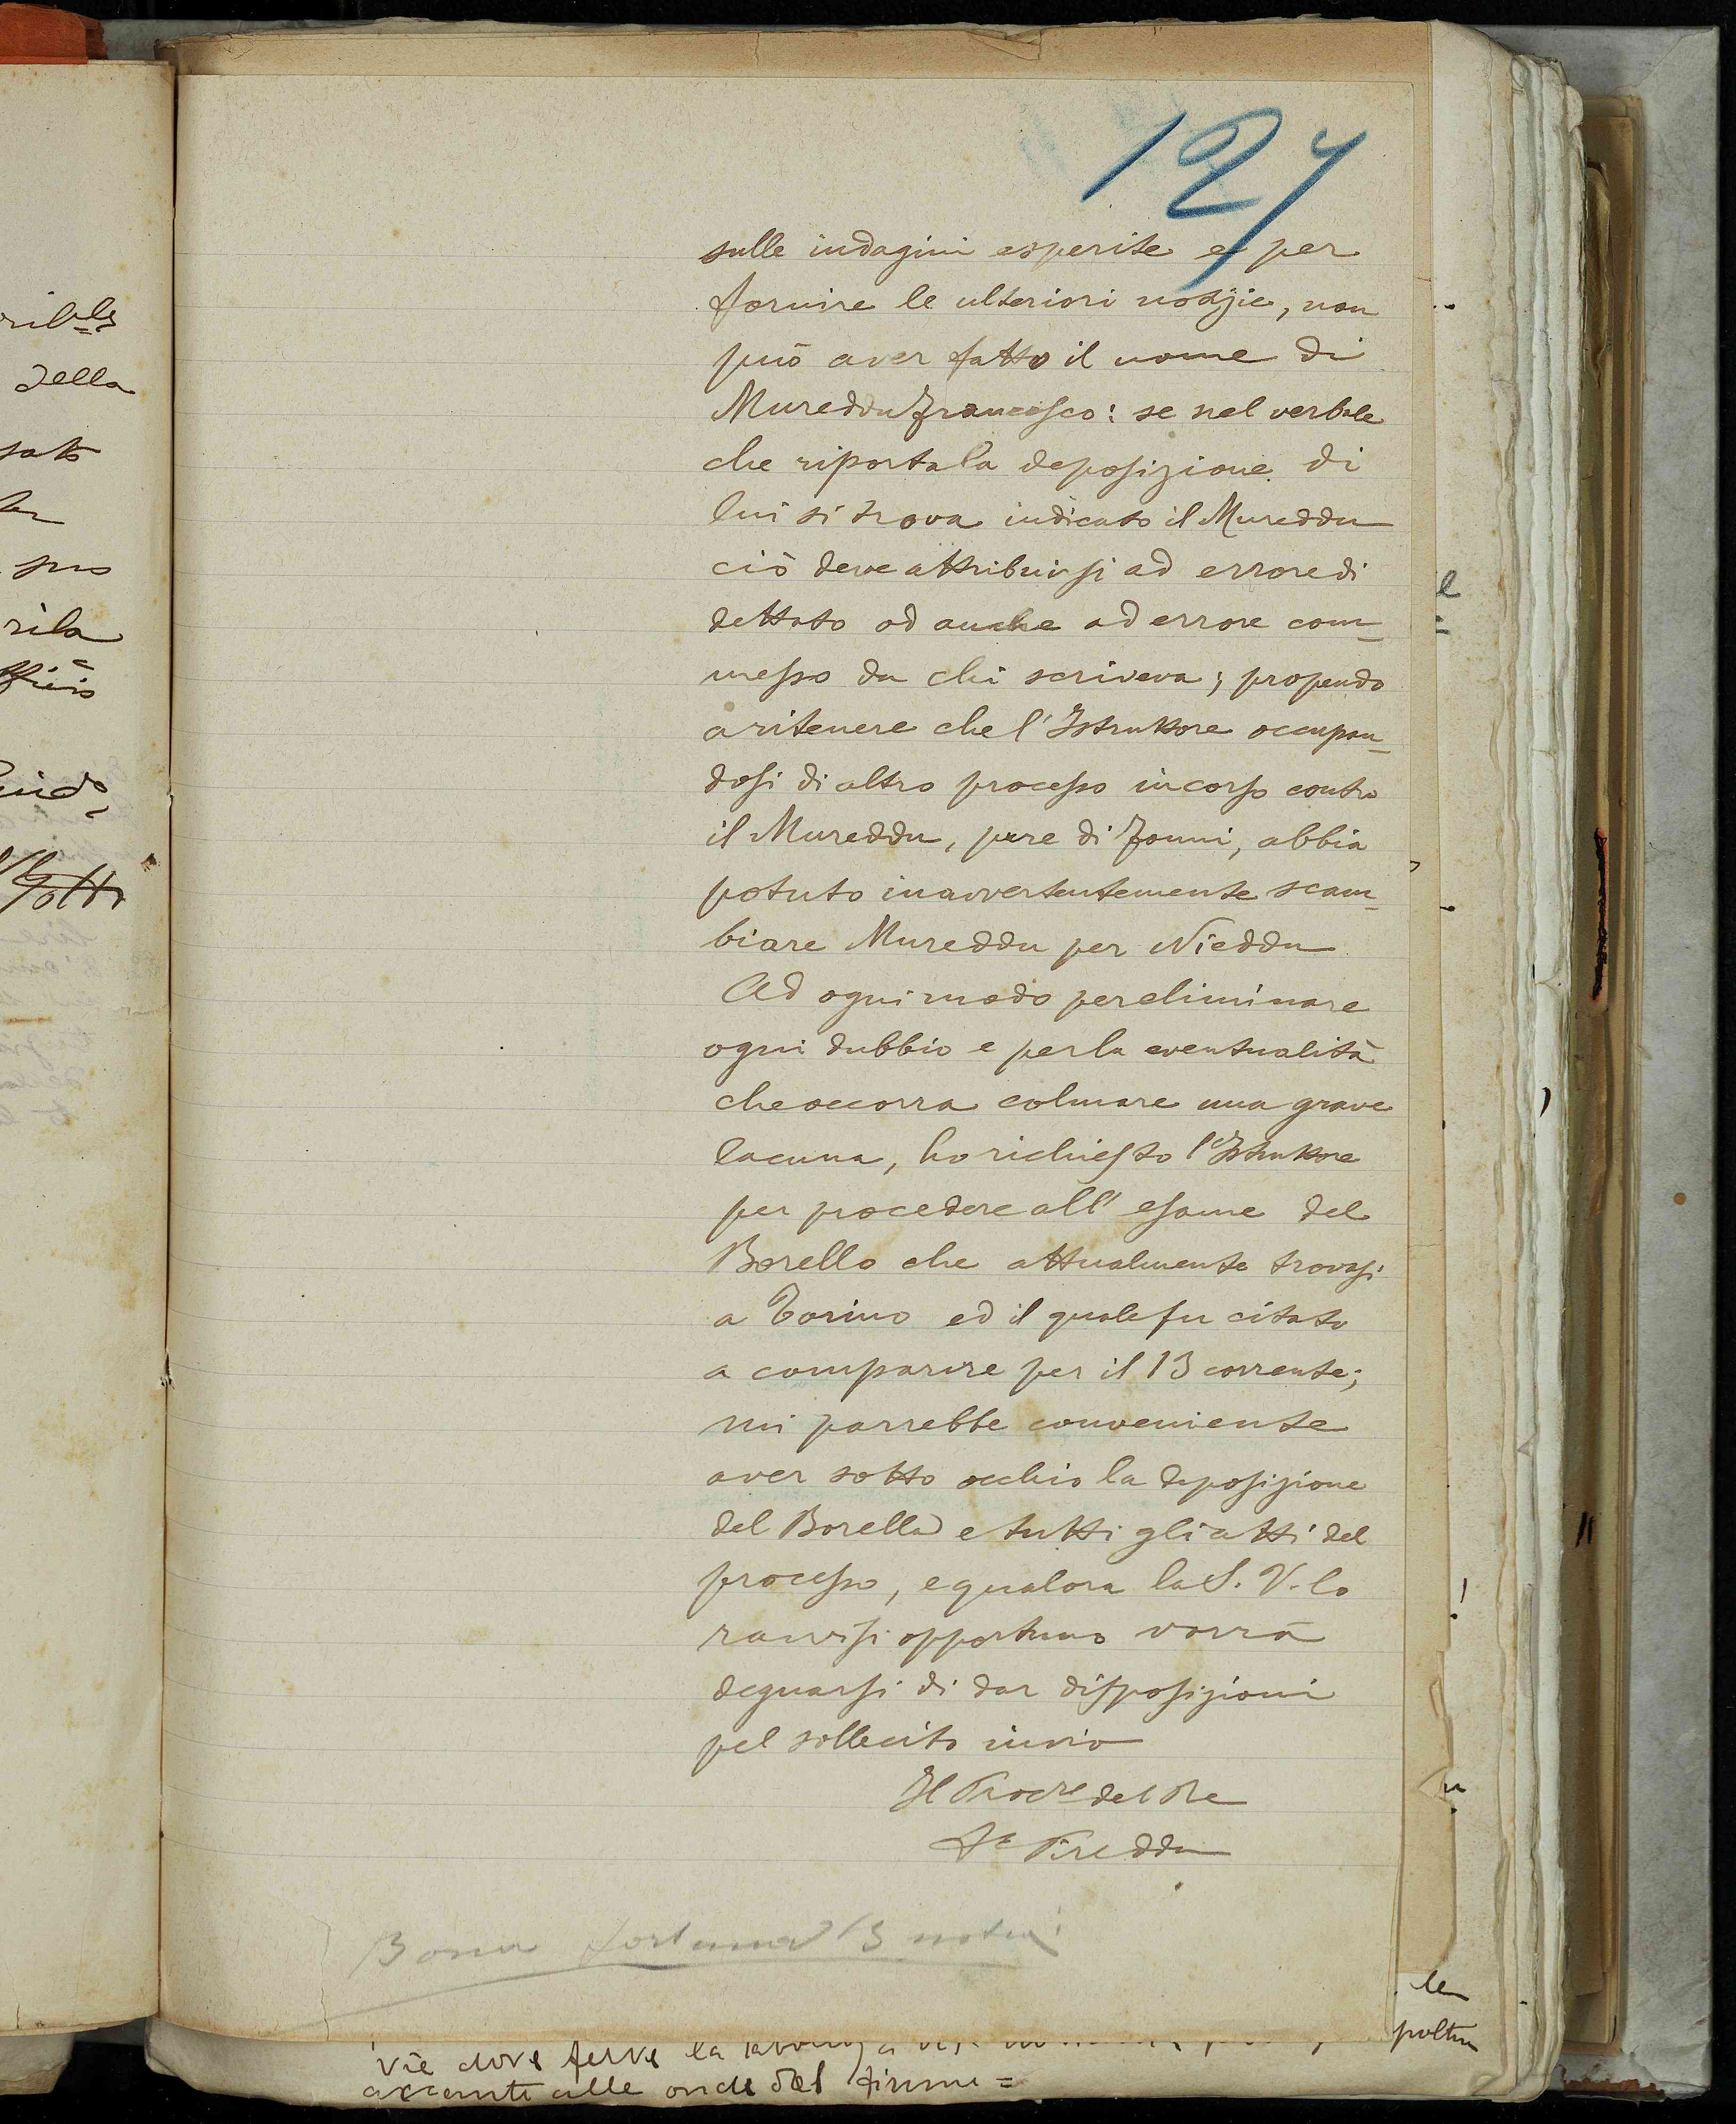 127
sulle indagini esperite e per
fornire le ulteriori notizie, non
può aver fatto il nome di
Mureddu Francesco: se nel verbale
che riporta la deposizione di
lui si trova indicato il Mureddu
ciò deve attribuirsi ad errore di
dettato od anche ad errore com=
messo da chi scriveva; propendo
a ritenere che l'Istruttore occupan=
dosi di altro processo in corso contro
il Mureddu, pure di Fonni, abbia
potuto inavvertentemente scam=
biare Mureddu per Nieddu
Ad ogni modo per eliminare
ogni dubbio e per la eventualità
che occorra colmare una grave
lacuna, ho richiesto l'Istruttore
per procedere all'esame del
Borello che attualmente trovasi
a Torino ed il quale fu citato
a comparire per il 13 corrente;
mi parrebbe conveniente
aver sotto occhio la deposizione
del Borello e tutti gli atti del
processo, e qualora la S. V. lo
ravvisi opportuno vorrà
degnarsi di dar disposizioni
pel sollecito invio
Il Procre del Re
Pireddu
della
rila
le
vie dove ferve la
alle onde del fiume =